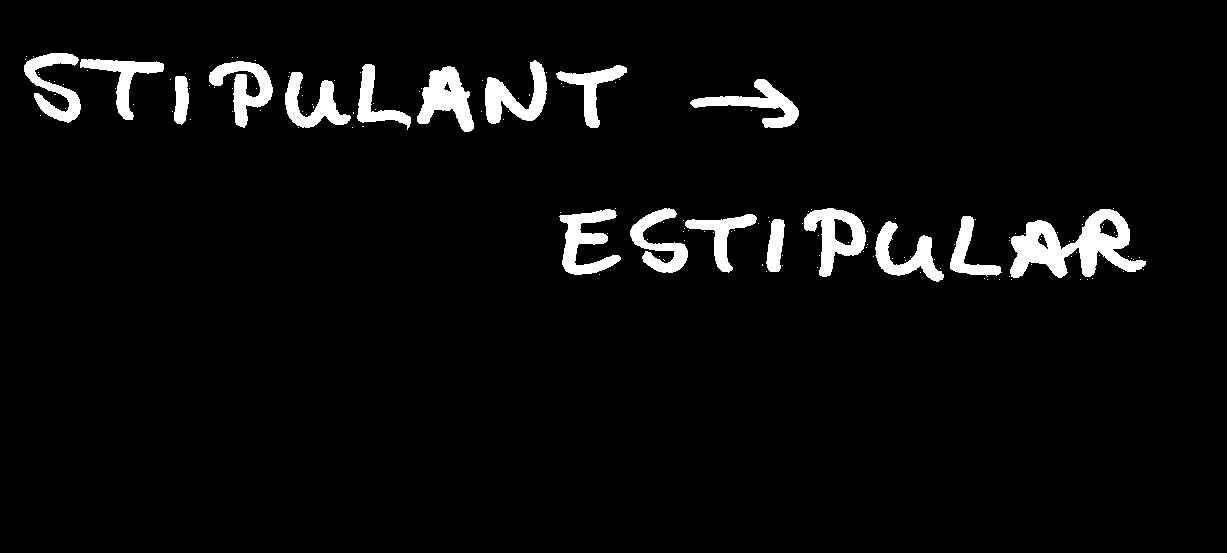 STIPULANT →
ESTIPULAR